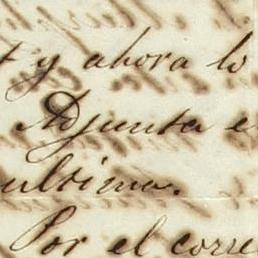 y ahora lo
Adjunta e
ultimo.
Por el corre